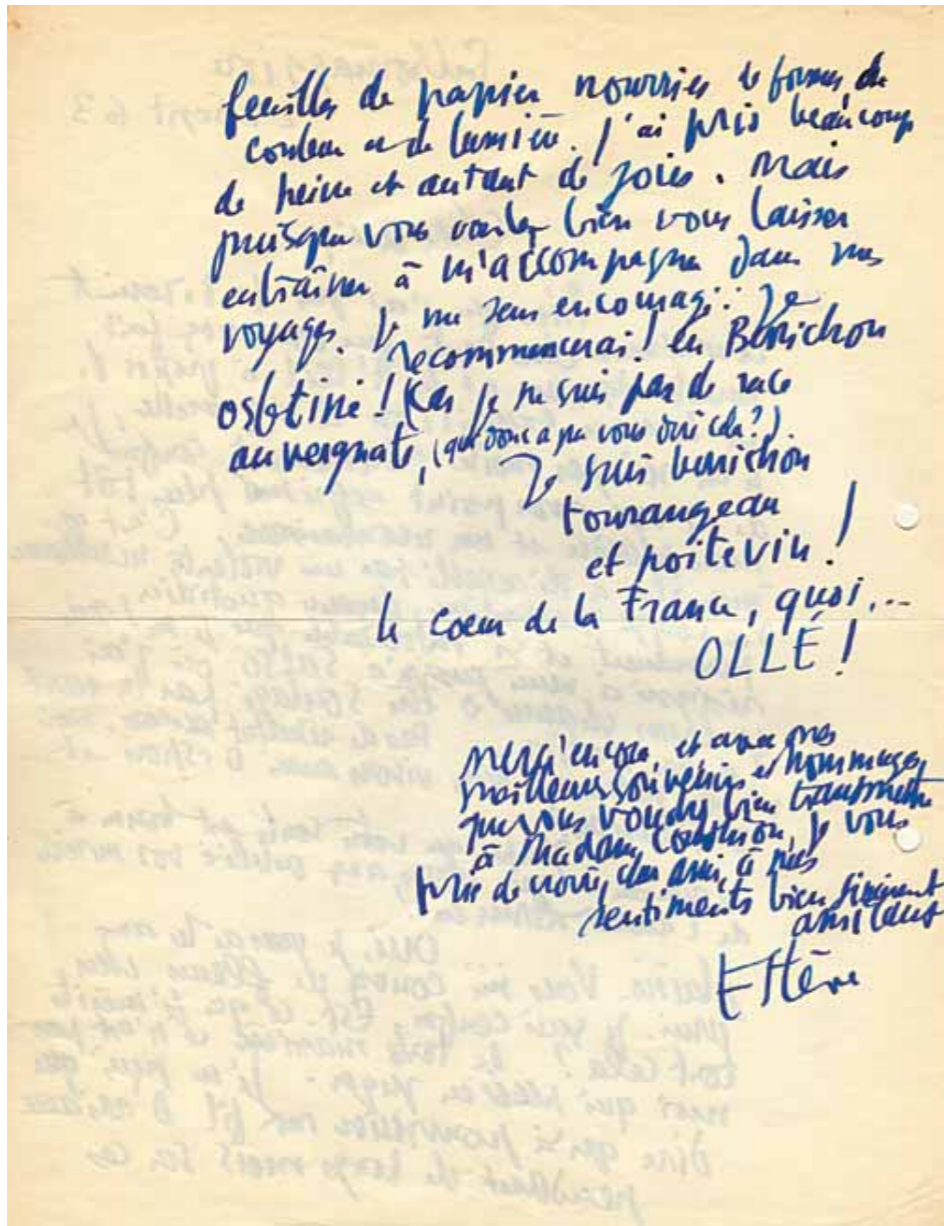 feuilles de papier nourries de formes, de
couleur et de lumière. J'ai pris beaucoup
de peine et autant de joies. Mais
puisque vous voulez bien vous laisser
entraîner à m'accompagner dans mes
voyages, je me sens encouragé : Je
recommencerai ! en Berrichon
osbtiné ! (Car je ne suis pas de race
auvergnate, (qui donc a pu vous dire cela ?)
Je suis berrichon
tourangeau
et poitevin !
le coeur de la France, quoi...
OLLÉ !
Merci encore, et avec mes
meilleurs souvenirs et hommages
que vous voudrez bien transmettre
à Madame, je vous
prie de croire, cher ami, à mes
sentiments bien sincèrement
amicaux
Estève